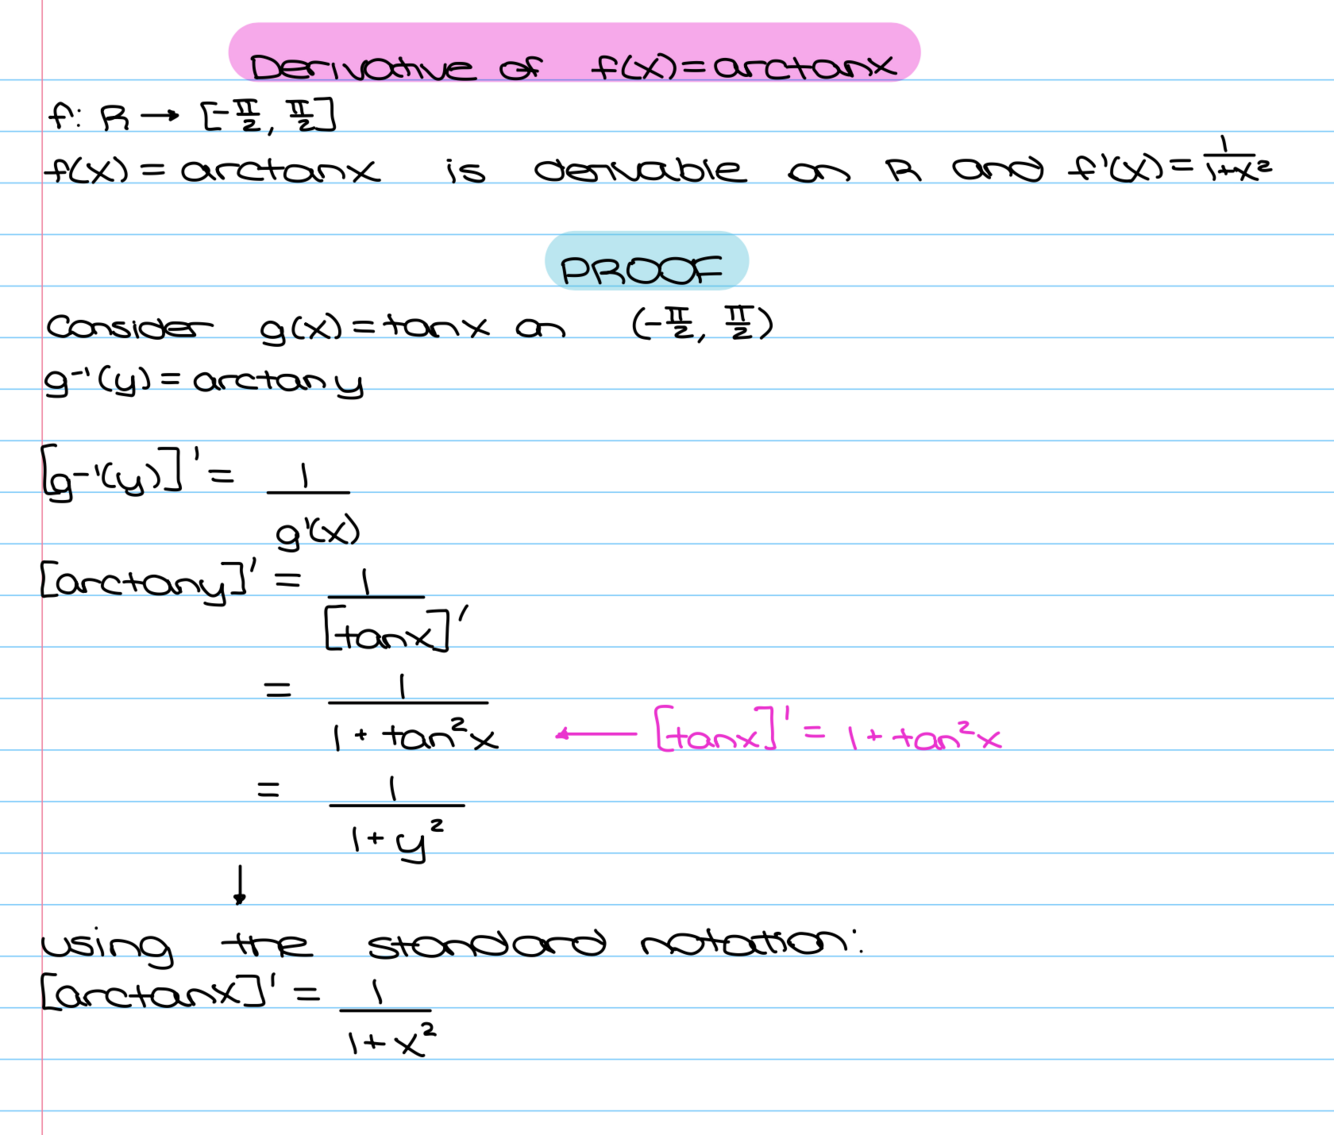 Derivative of f(x)=arctanx
f: R → [-π/2, π/2]
f(x) = arctanx is derivable on R and f'(x) = 1/1+x²
PROOF
Consider g(x)=tanx on (-π/2, π/2)
g⁻¹(y) = arctany
[g⁻¹(y)]' = 1/g'(x)
[arctany]' = 1/[tanx]'
= 1/1 + tan²x ← [tanx]' = 1 + tan²x
= 1/1 + y²
↓
using the standard notation:
[arctanx]' = 1/1 + x²